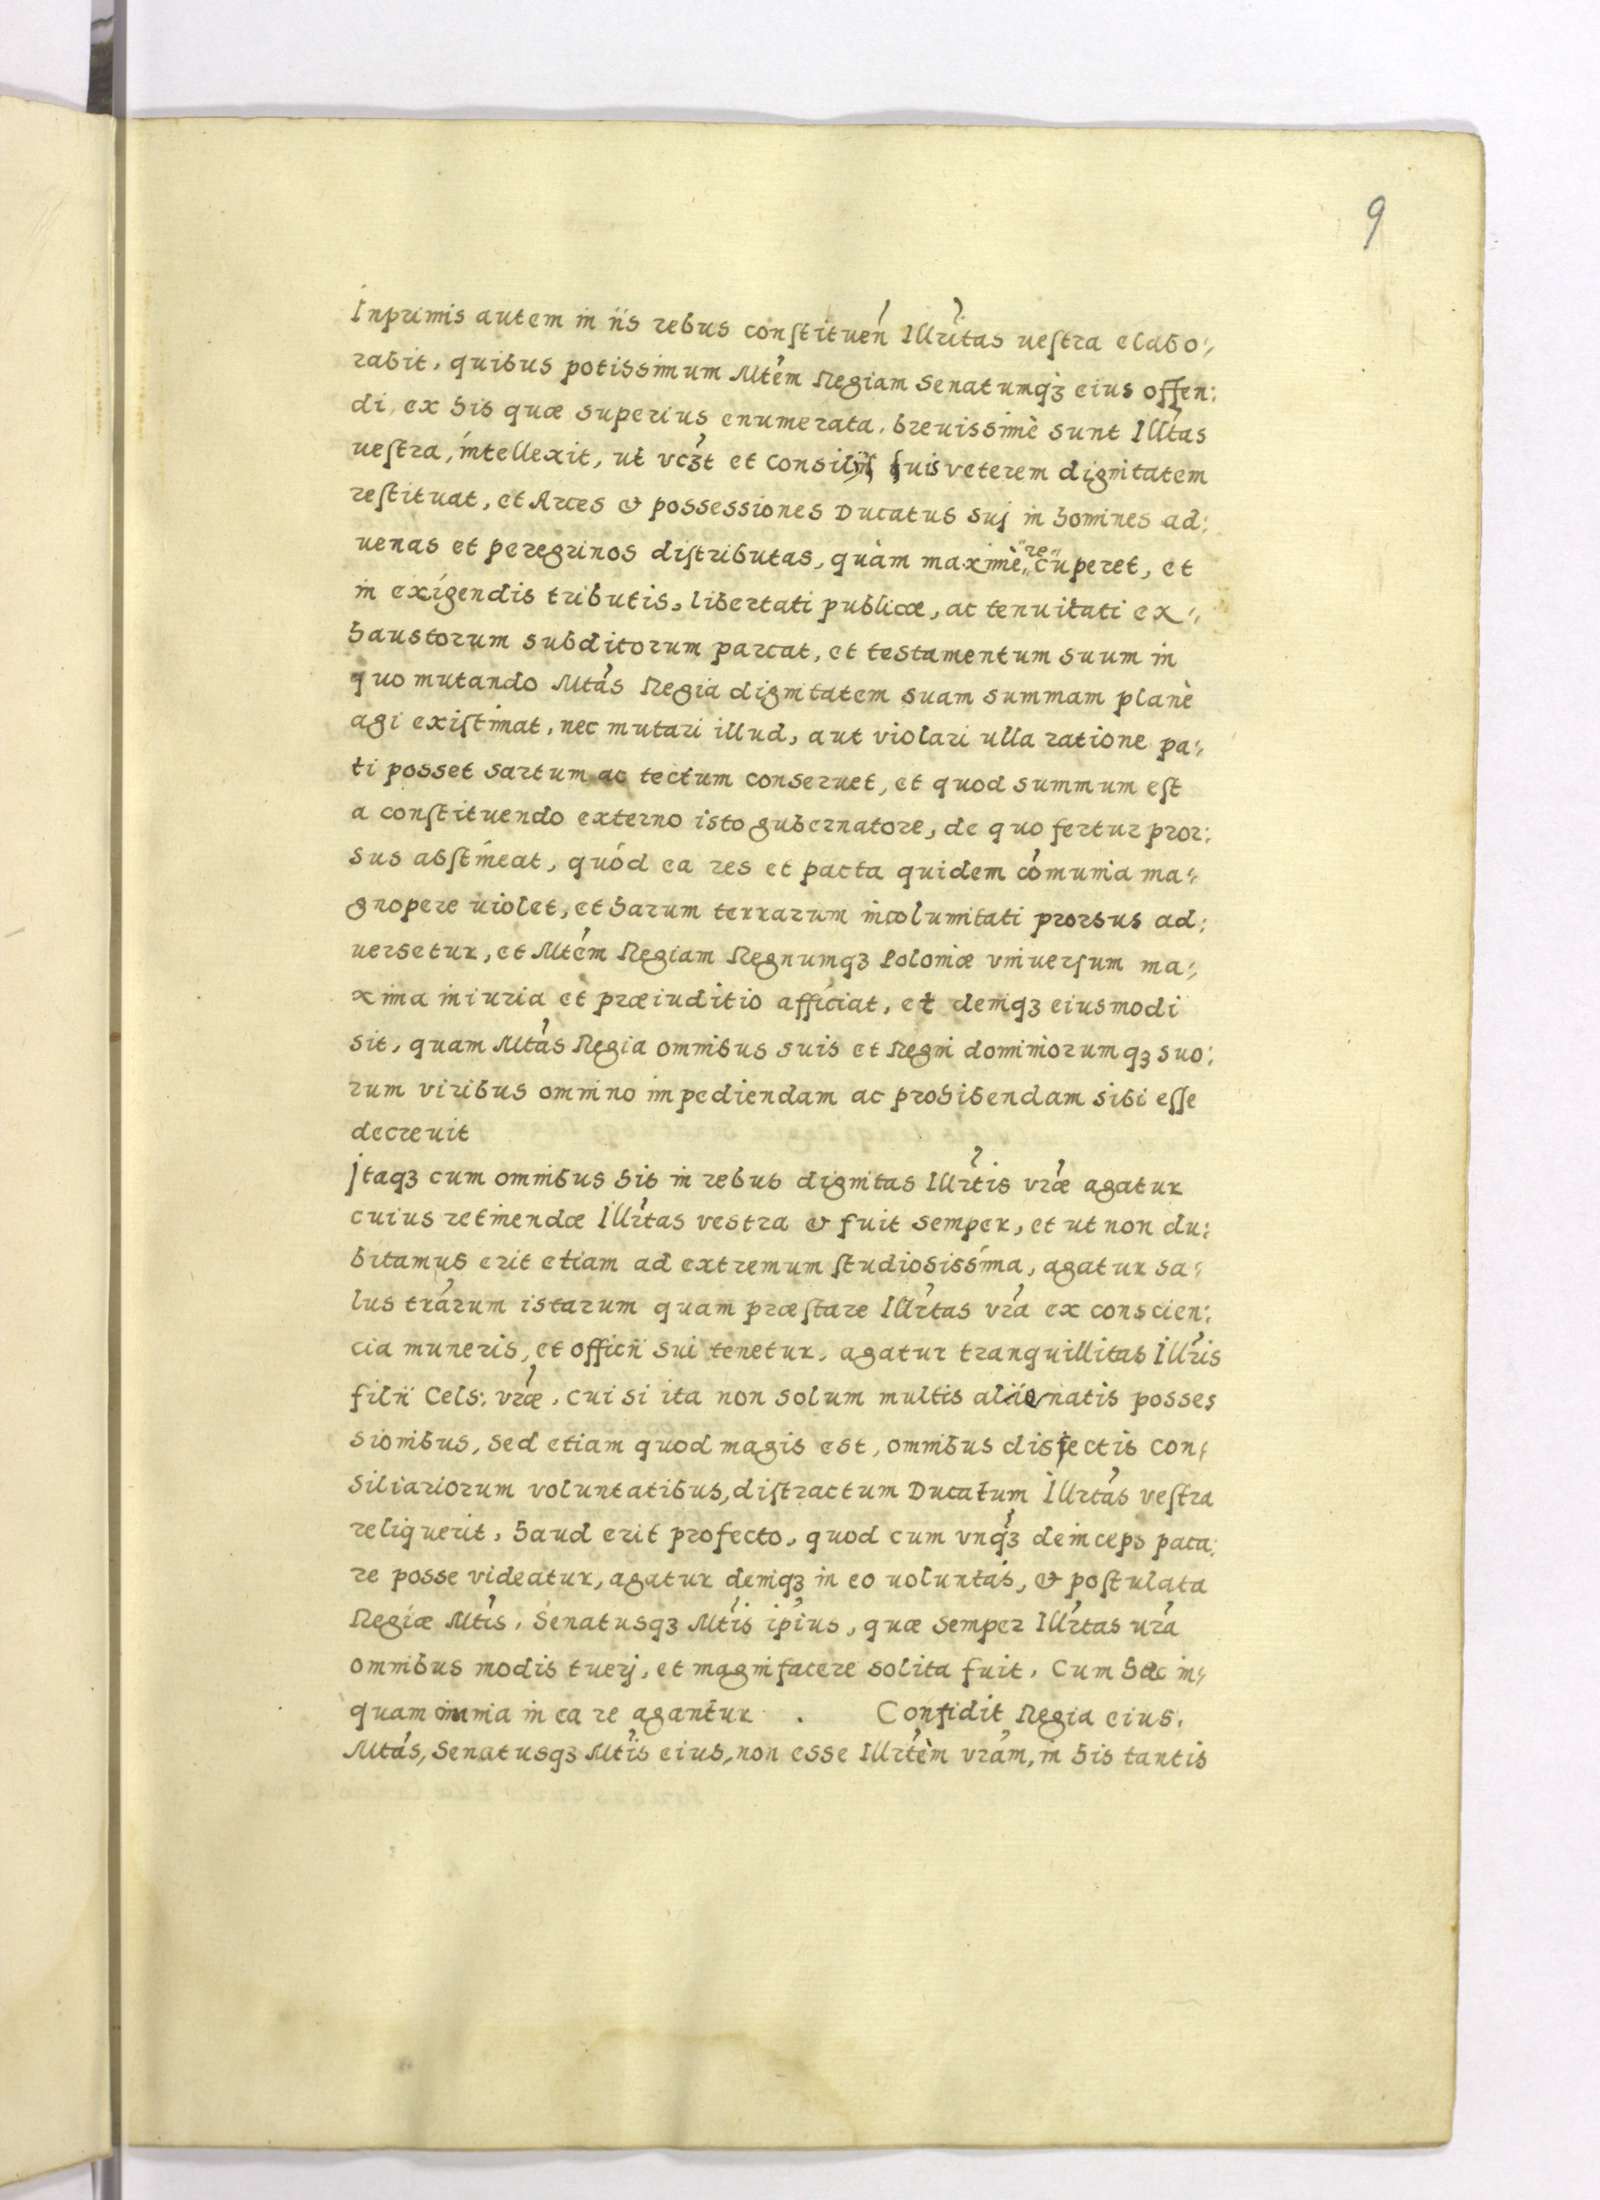 9
Inprimis autem in iis rebus constituen̄ Illritas uestra elabo⸗
rabit, quibus potissimum Mtem Regiam Senatumqꝫ eius offen:
di, ex his quæ superius enumerata, breuissimè sunt Illtas
uestra, intellexit, ut vcꝫt et consiliis suis veterem dignitatem
restituat, et Arces & possessiones Ducatus suj in homines ad:
uenas et peregrinos distributas, quàm maximè, recuperet, et
in exigendis tributis, libertati publicæ, ac tenuitati ex⸗
haustorum subditorum parcat, et testamentum suum in
quo mutando Mtas Regia dignitatem suam summam planè
agi existimat, nec mutari illud, aut violari ulla ratione pa⸗
ti posset sartum ac tectum conseruet, et quod summum est
a constituendo externo isto gubernatore, de quo fertur pror:
sus abstineat, quód ea res et pacta quidem cōmunia ma⸗
gnopere uiolet, et harum terrarum incolumitati prorsus ad:
uersetur, et Mtem Regiam Regnumqꝫ Poloniæ vniuersum ma⸗
xima iniuria et præiuditio afficiat, et deniqꝫ eiusmodi
sit, quam Mtas Regia omnibus suis et Regni dominiorumqꝫ suo:
rum viribus omnino impediendam ac prohibendam sibi esse
decreuit
Jtaqꝫ cum omnibus his in rebus dignitas Illrtis vræ agatur
cuius retinendæ Illrtas vestra & fuit semper, et ut non du:
bitamus erit etiam ad extremum studiosissima, agatur sa⸗
lus trarum istarum quam præstare Illrtas vra ex conscien:
cia muneris, et officii sui tenetur, agatur tranquillitas Illris
filii Cels: vræ, cui si ita non solum multis alienatis posses
sionibus, sed etiam quod magis est, omnibus disiectis con⸗
siliariorum voluntatibus, distractum Ducatum Illrtas vestra
reliquerit, haud erit profecto, quod cum vnqꝫ deinceps paca:
re posse videatur, agatur deniqꝫ in eo uoluntas, & postulata
Regiæ Mtis, Senatusqꝫ Mtis ipius, quæ semper Illrtas ura
omnibus modis tuerj, et magnifacere solita fuit, Cum hæc in⸗
quam omnia in ea re agantur . Confidit Regia eius,
Mtas, Senatusqꝫ Mtis eius, non esse Illrtem vram, in his tantis